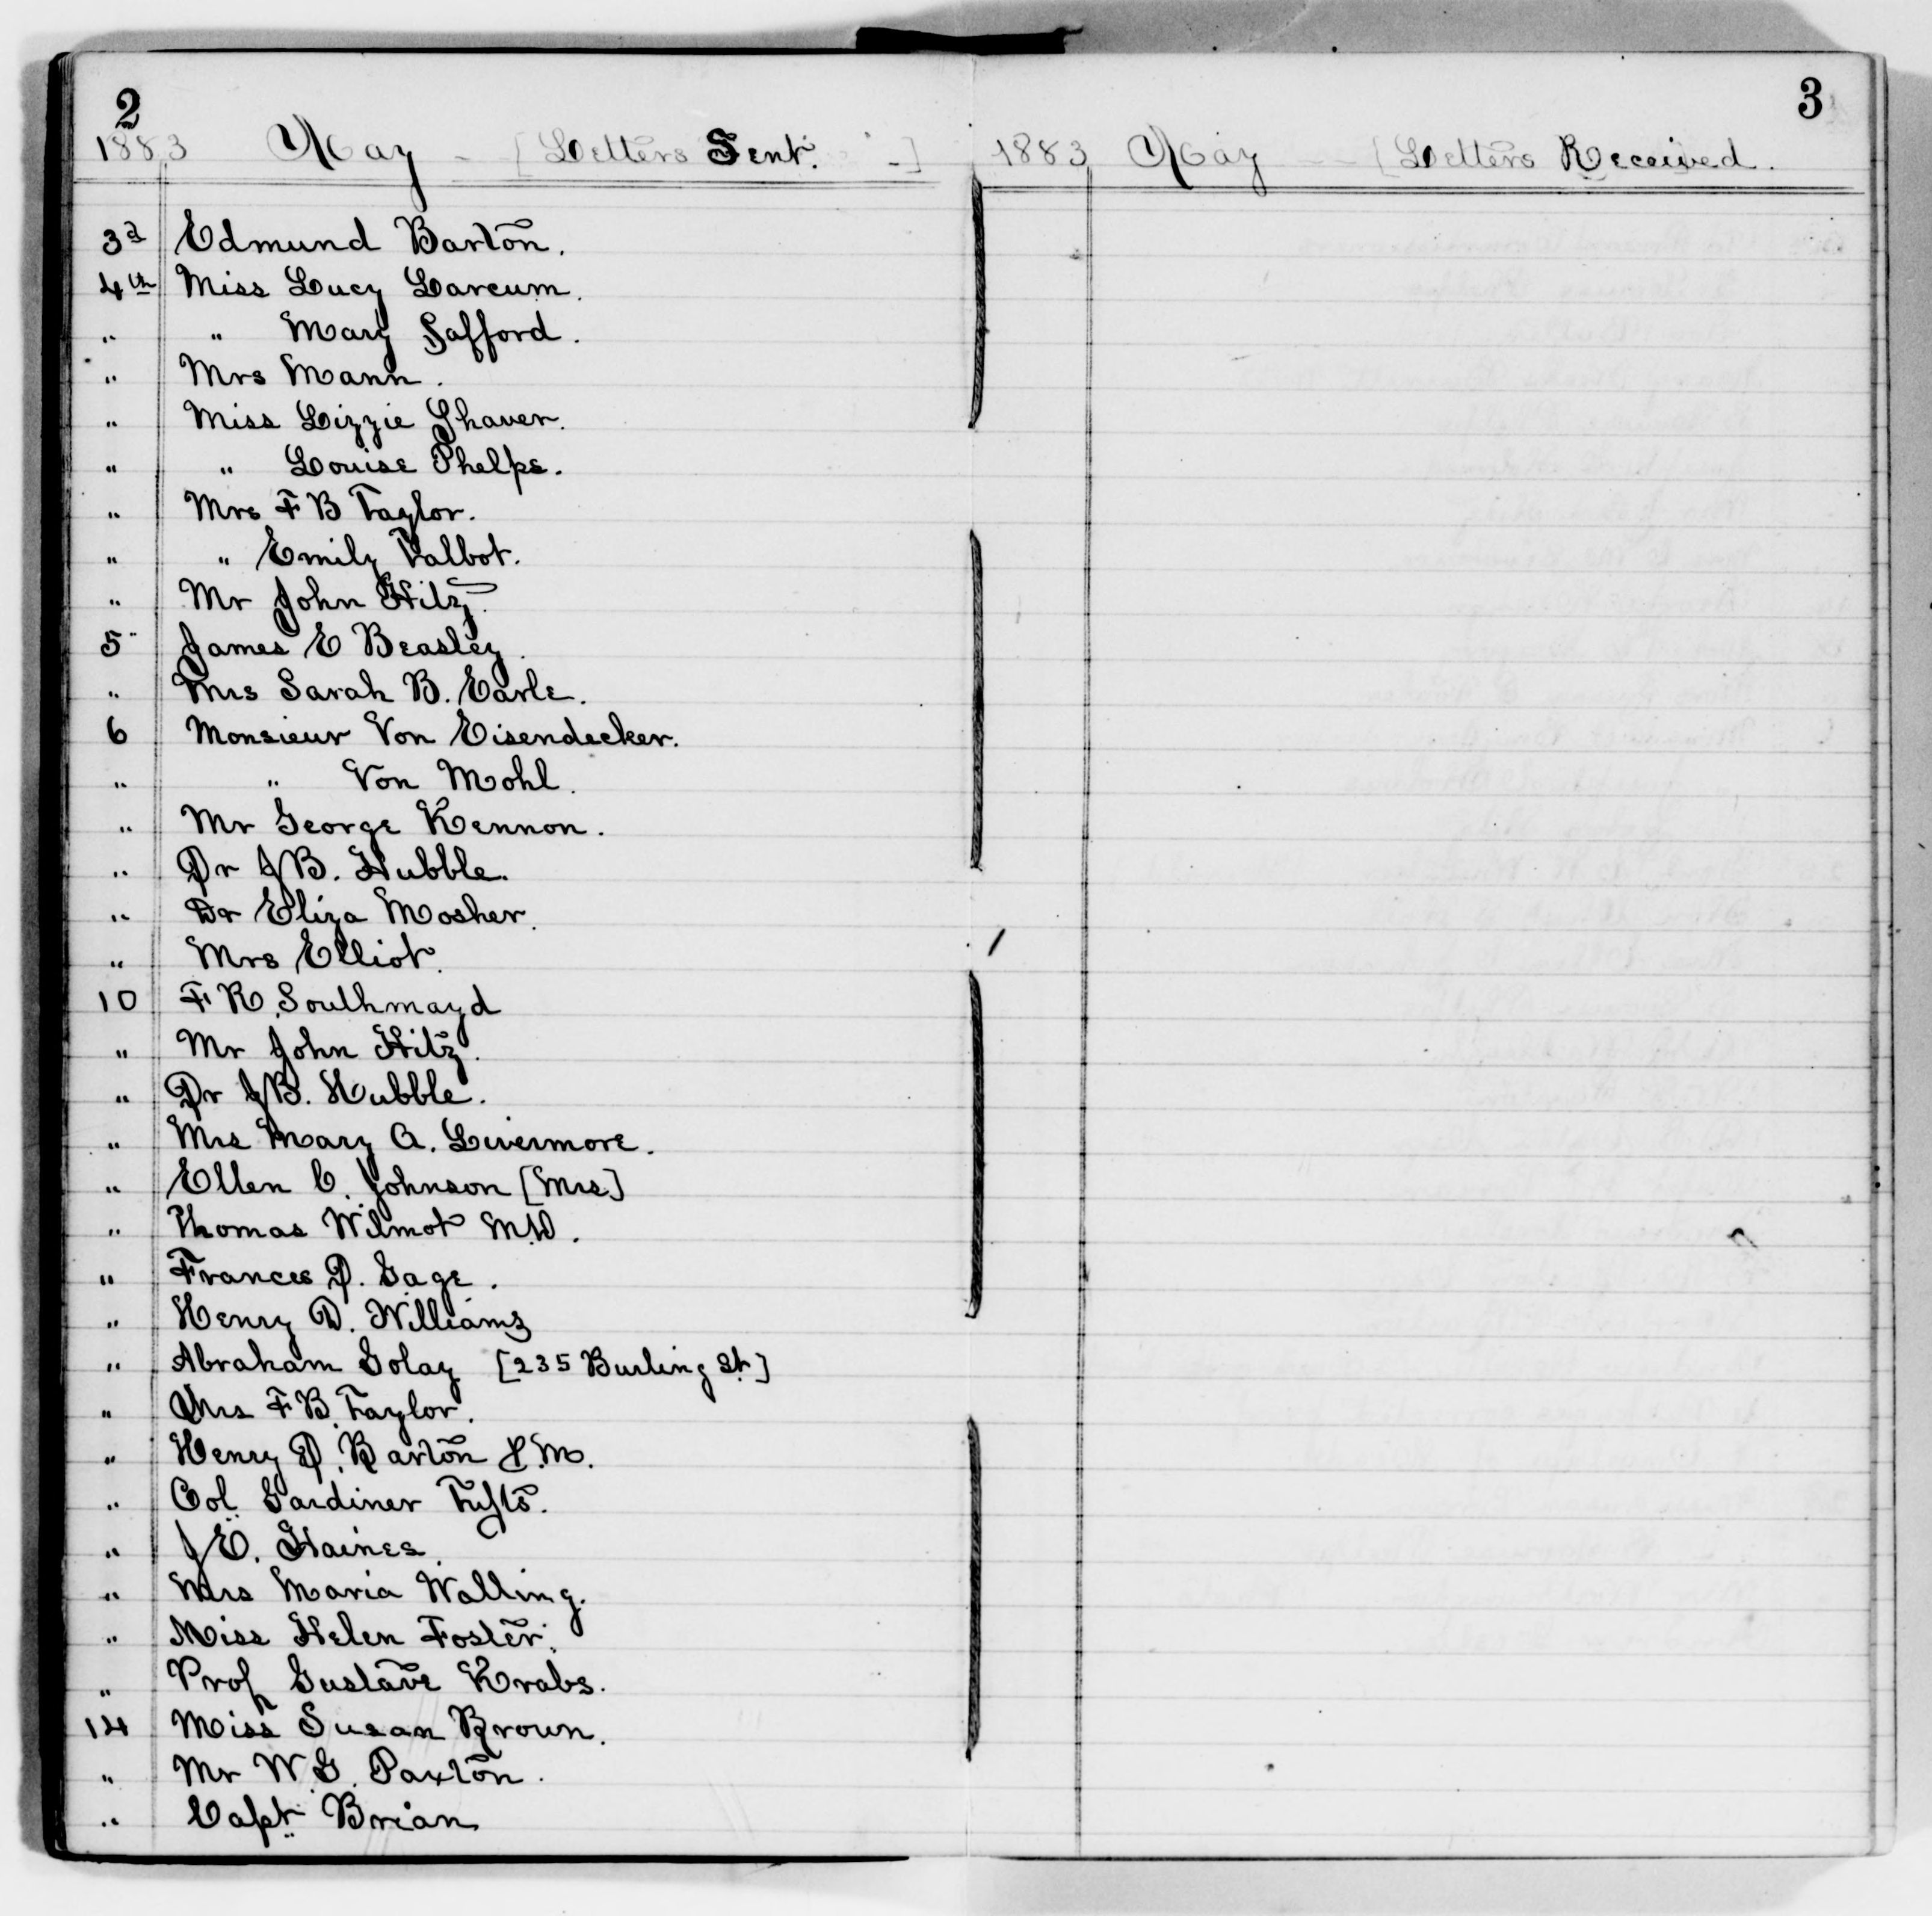 2
1883 May - [Letters Sent. -]
3d Edmund Barton.
4th Miss Lucy Larcum.
" " Mary Safford.
" Mrs Mann.
" Miss Lizzie Shaver.
" " Louise Phelps.
" Mrs F B Taylor.
" " Emily Talbot.
" Mr John Hitz.
5" James E Beasley.
" Mrs Sarah B. Earle.
6 Monsieur Von Eisendecker.
" " Von Mohl.
" Mr George Kennon.
" Dr J B. Hubble.
" Dr Eliza Mosher.
" Mrs Elliot.
10 F R. Southmayd
" Mr John Hitz.
" Dr J B. Hubble.
" Mrs Mary A. Livermore.
" Ellen C. Johnson [Mrs]
" Thomas Wilmot M.D.
" Frances D. Gage.
" Henry D. Williams
" Abraham Golay [235 Burling St.]
" Mrs F B. Taylor.
" Henry D. Barton P.M.
" Col. Gardiner Tufts.
" J E. Haines.
" Mrs Maria Walling.
" Miss Helen Foster.
" Prof Gustave Krabs.
14 Miss Susan Brown.
" Mr W. G. Paxton.
" Capt Brian
3
1883 May - - [Letters Received.